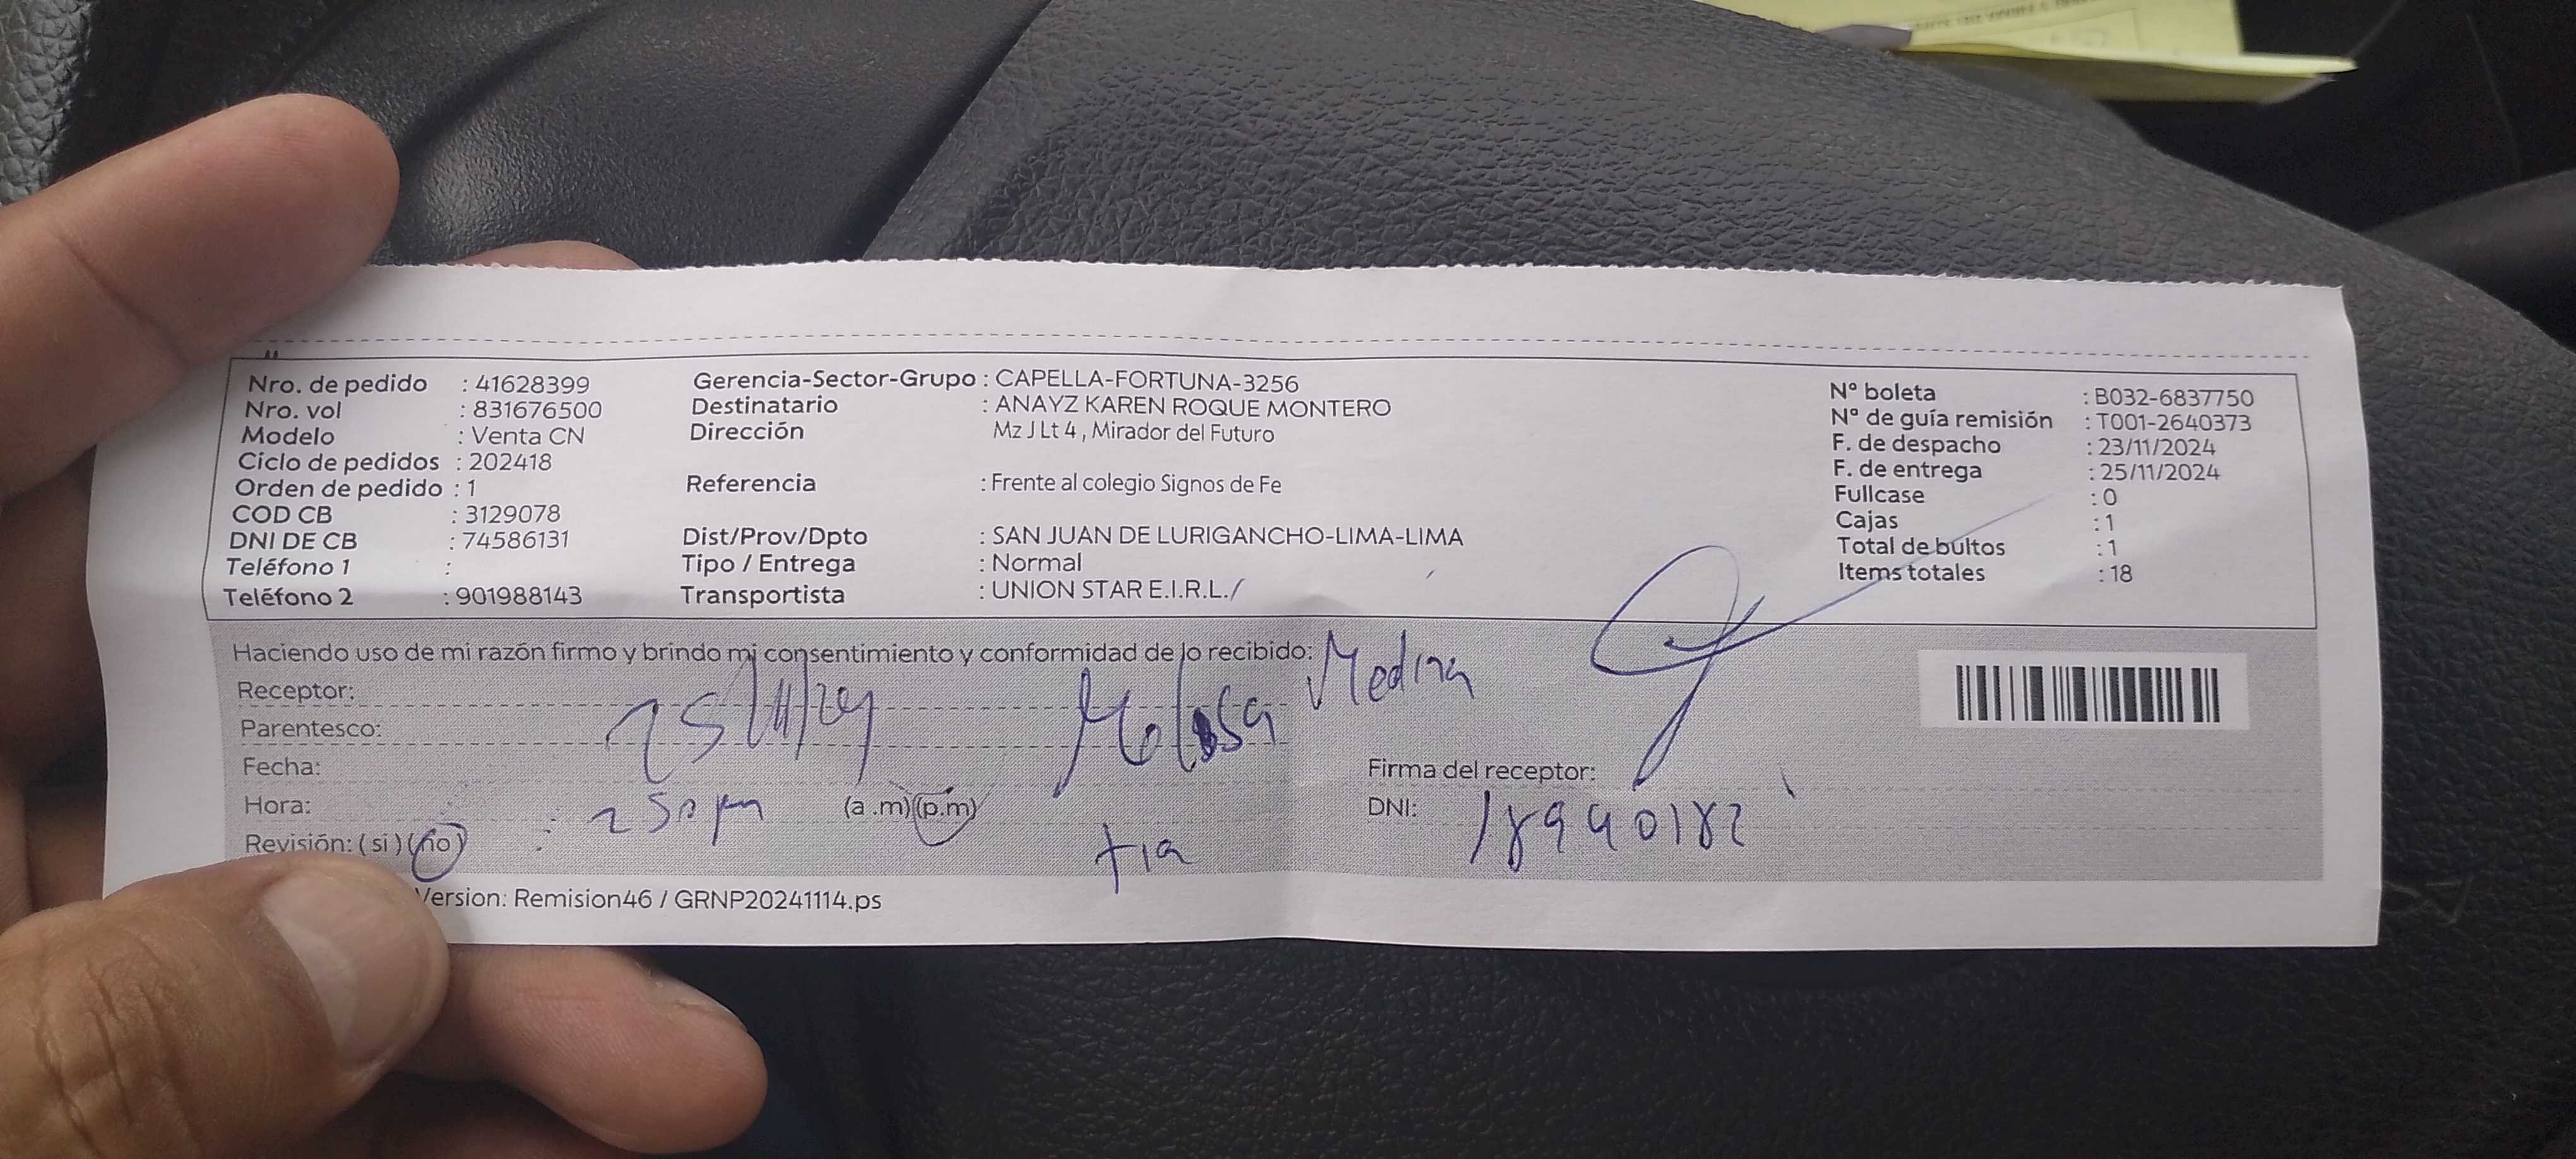 Nro. de pedido : 41628399
Nro. vol : 831676500
Modelo : Venta CN
Ciclo de pedidos : 202418
Orden de pedido : 1
COD CB : 3129078
DNI DE CB : 74586131
Teléfono 1 :
Teléfono 2 : 901988143
Gerencia-Sector-Grupo : CAPELLA-FORTUNA-3256
Destinatario : ANAYZ KAREN ROQUE MONTERO
Dirección Mz J Lt 4 , Mirador del Futuro
Referencia : Frente al colegio Signos de Fe
Dist/Prov/Dpto : SAN JUAN DE LURIGANCHO-LIMA-LIMA
Tipo / Entrega : Normal
Transportista : UNION STAR E.I.R.L./
Nº boleta : B032-6837750
Nº de guía remisión : T001-2640373
F. de despacho : 23/11/2024
F. de entrega : 25/11/2024
Fullcase : 0
Cajas : 1
Total de bultos : 1
Items totales : 18
Haciendo uso de mi razón firmo y brindo mi consentimiento y conformidad de lo recibido:
Receptor: Medina
Parentesco: 25/11/24
Fecha:
Hora: : 250 pm (a .m)(p.m)
Revisión: ( si ) (no) tia
Firma del receptor:
DNI:
Version: Remision46 / GRNP20241114.ps